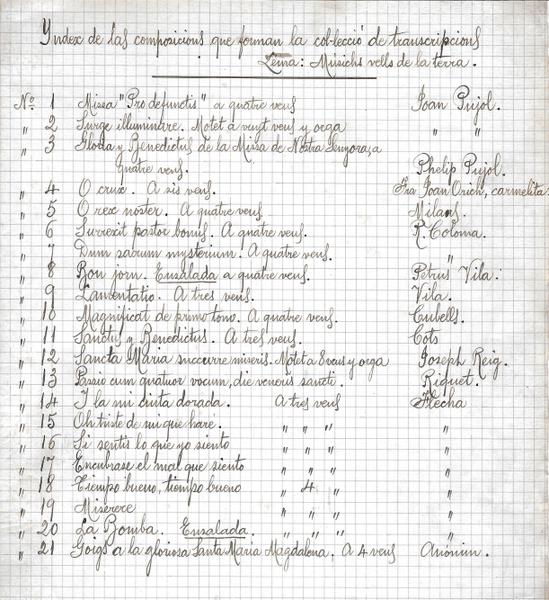 Yndex de las composicions que forman la col-lecció de transcripcions
Lema: Músichs vells de la terra.
No. 1 Missa "Pro defunctis" a quatre veus Joan Pujol.
" 2 Surge illuminare. Motet a vuyt veus y orga " "
" 3 Gloria y Benedictus de la Missa de Nostra Senyora, a
quatre veus. Phelip Pujol.
" 4 O crux. A sis veus. Fra Joan Orich, carmelita.
" 5 O rex noster. A quatre veus Milans.
" 6 Surrexit pastor bonus. A quatre veus. R. Coloma.
" 7 Dum sacrum mysterium. A quatre veus. "
" 8 Bon jorn. Ensalada a quatre veus. Petrus Vila.
" 9 Lamentatio. A tres veus. Vila.
" 10 Magnificat de primo tono. A quatre veus. Cubells.
" 11 Sanctus y Benedictus. A tres veus. Cots
" 12 Sancta Maria succurre miseris. Motet a 8 veus y orga Joseph Reig.
" 13 Passio cum quatuor vocum, die veneris sancti. Riquet.
" 14 Y la mi cinta dorada. A tres veus Flecha
" 15 Oh triste de mi que hare. " " " "
" 16 Si sentis lo que yo siento " " " "
" 17 Encubrase el mal que siento " " " "
" 18 Tiempo bueno, tiempo bueno " 4 " "
" 19 Miserere " " " "
" 20 La Bomba. Ensalada. " " " "
" 21 Goigs a la gloriosa Santa Maria Magdalena. A 4 veus Anónim.